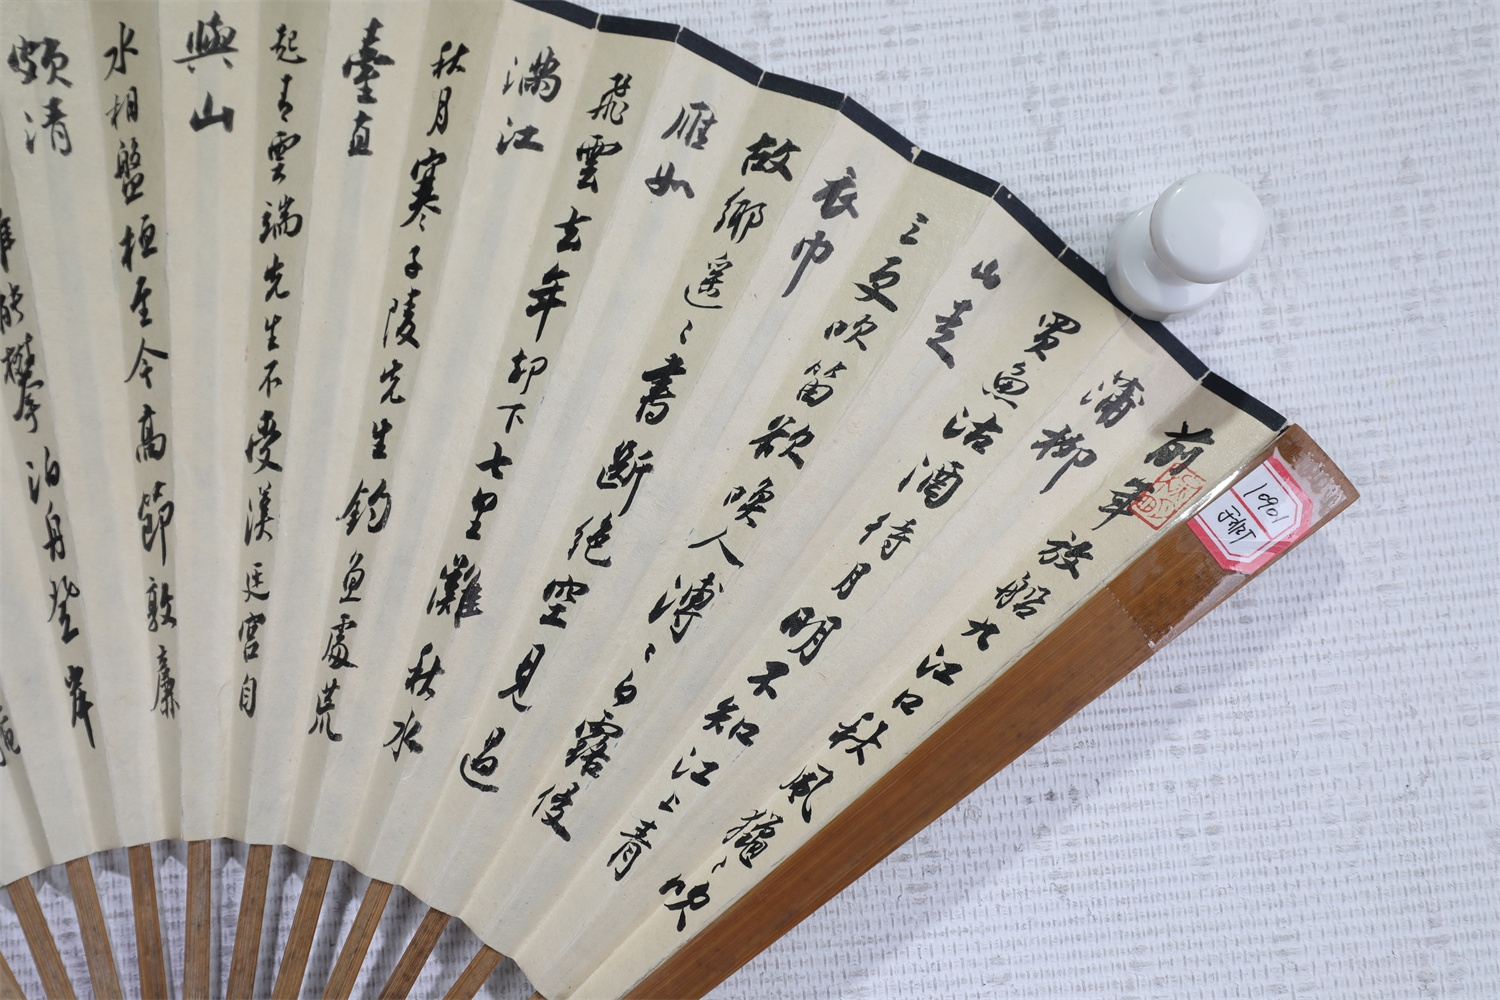 前年放船九江口秋風獵〻吹
蒲柳
買魚沽酒待月明不知江上青
山走
三更吹笛欲喚人溥〻白露侵
衣巾
故鄉遥〻書斷絕空見過
雁如
飛雲去年却下七里灘秋水
滿江
秋月寒子陵先生釣魚處荒
臺直
起青雲端先生不受漢廷宮自
與山
水相盤桓至今高節敦廉
頗清
泊舟登岸
1090